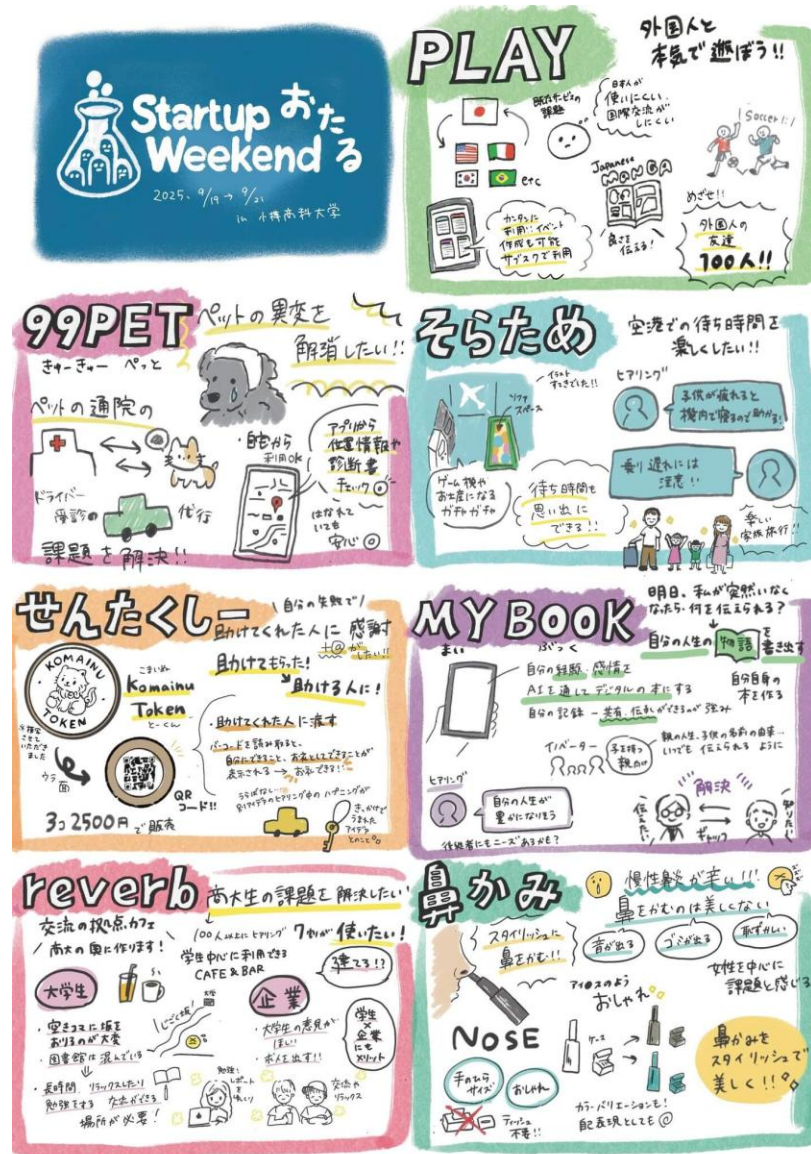 Startup
Weekend
おたる
2025. 9/19 → 9/21
in 小樽商科大学
PLAY
外国人と
本気で遊ぼう!!
既存サービスの
課題
日本人が
使いにくい
国際交流が
しにくい
Soccer
Japanese
MANGA
etc
カンタンに
利用!!イベント
作成も可能
サブスクで利用
良さを
伝える!
めざせ!!
外国人の
友達
100人!!
99PET
きゅーきゅー ぺっと
ペットの異変を
解消したい!!
ペットの通院の
ドライバー
受診の
代行
課題を解決!!
自宅から
利用OK
アプリから
位置情報や
診断書
チェック◎
はなれて
いても
安心◎
そらため
空港での待ち時間を
楽しくしたい!!
イラスト
すてきでした!!
ソファ
スペース
ヒアリング
子供が疲れると
機内で寝るので助かる!
乗り遅れには
注意!!
ゲーム機や
お土産になる
ガチャガチャ
待ち時間も
思い出に
できる!!
楽しい
家族旅行!!
せんたくしー
自分の失敗で
助けてくれた人に感謝
がしたい!!
助けてもらった!
助ける人に!
KOMAINU
TOKEN
こまいぬ
Komainu
Token
とーくん
※模写
させて
いただき
ました
ウラ
面
QR
コード!!
3コ2500円で販売
・助けてくれた人に渡す
バーコードを読み取ると、
自分にできること、お礼としてできることが
表示される → お礼できる!!
うらばなし…
別アイデアのヒアリング中のハプニングが
きっかけで
うまれた
アイデア
とのこと
MY BOOK
まい ぶっく
明日、私が突然いなく
なったら何を伝えられる?
自分の人生の物語を
書き出す
自分の経験、感情を
AIを通してデジタルの本にする
自分の記録 ー 共有、伝承ができるのが強み
自分自身の
本を作る
イノベーター
子を持つ
親向け
親の人生、子供の名前の由来…
いつでも伝えられるように
ヒアリング
自分の人生が
豊かになりそう
後継者にもニーズあるかも?
解決
伝えたい
ギャップ
知りたい
reverb
商大生の課題を解決したい!
交流の拠点、カフェ
商大の奥に作ります!
100人以上にヒアリング 7割が使いたい!
学生中心に利用できる
CAFE & BAR
建てる!?
大学生
・空きコマに坂を
おりるのが大変
・図書館は混んでいる
・長時間、リラックスしたり
勉強をする
場所が必要!
大学
じごく坂!
企業
・大学生の意見が
ほしい
・求人を出す!!
学生
×
企業
にも
メリット
勉強!
レポート
交流や
リラックス
鼻かみ
慢性鼻炎が辛い!!!
鼻をかむのは美しくない
音が出る
ゴミが出る
恥ずかしい
スタイリッシュに
鼻をかむ!!
女性を中心に
課題と感じる
アイコスのよう
おしゃれ
NOSE
ケース
手のひら
サイズ
おしゃれ
ティッシュ
不要!!
カラーバリエーションも!
自己表現としても◎
鼻かみを
スタイリッシュで
美しく!!